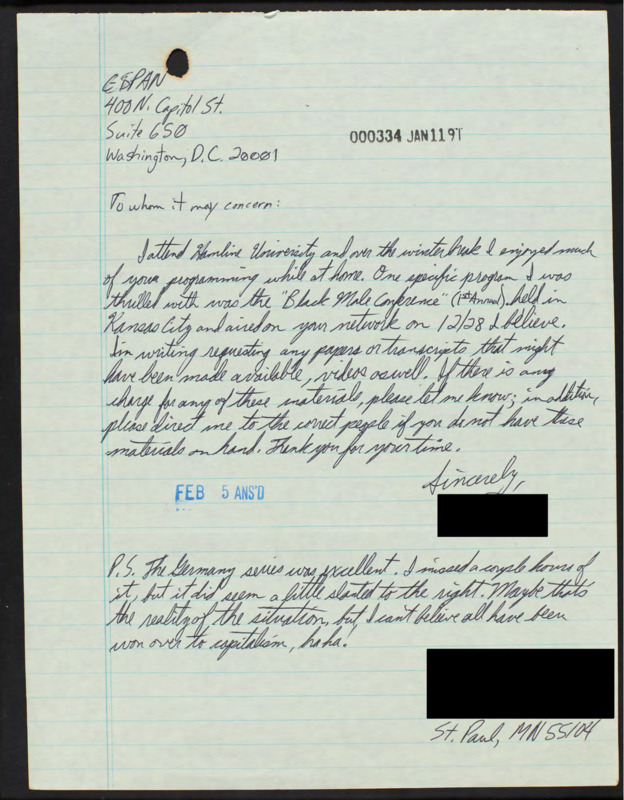 CSPAN
400 N. Capitol St.
Suite 650
Washington, D.C. 20001
000334 JAN 11 91
To whom it may concern:
I attend Hamline University and over the winter break I enjoyed much
of your programming while at home. One specific program I was
thrilled with was the "Black Male Conference" (1st Annual), held in
Kansas City and aired on your network on 12/28 I believe.
I'm writing requesting any papers or transcripts that might
have been made available, videos as well. If there is any
charge for any of these materials, please let me know; in addition,
please direct me to the correct people if you do not have these
materials on hand. Thank you for your time.
Sincerely,
FEB 5 ANS'D
P.S. The Germany series was excellent. I missed a couple hours of
it, but it did seem a little slanted to the right. Maybe that's
the reality of the situation, but I can't believe all have been
won over to capitalism, haha!
St. Paul, MN 55104